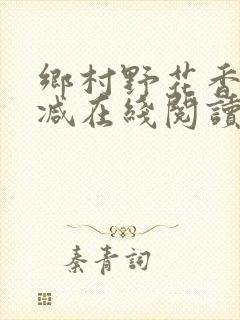 鄉村野花香
減在綫閱讀
秦青詞